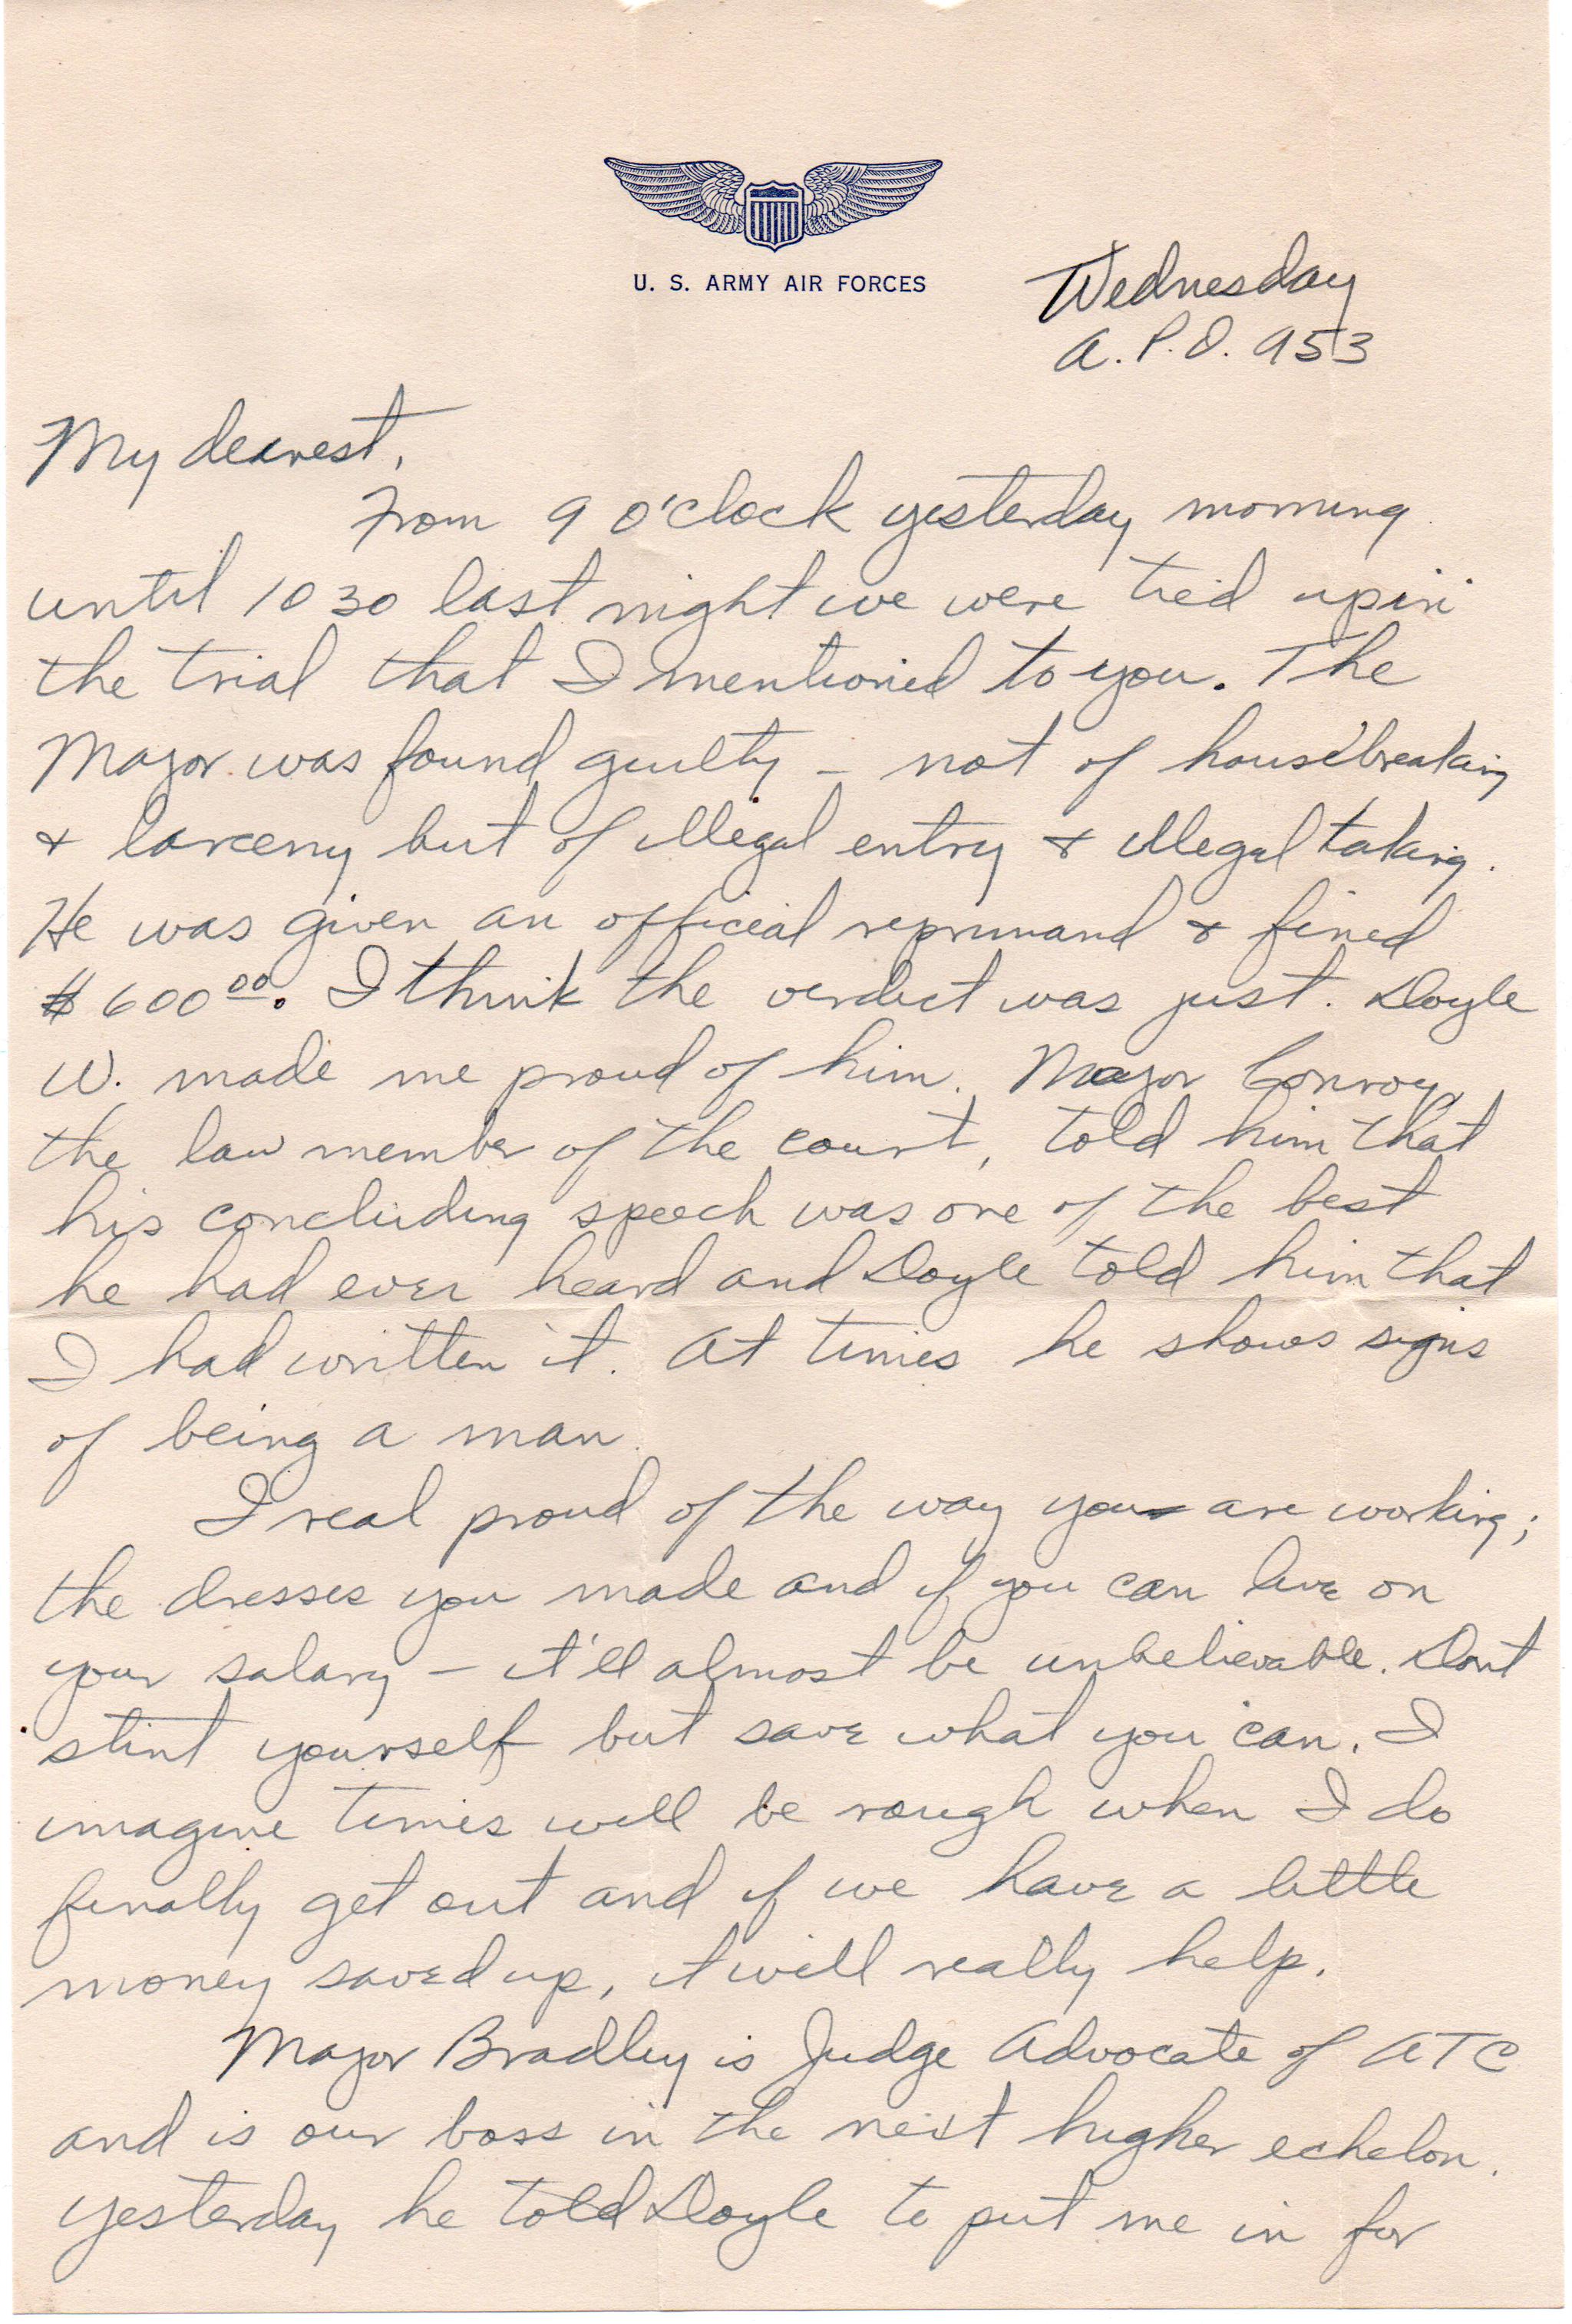 U. S. ARMY AIR FORCES
Wednesday
A.P.O. 953
My dearest,
From 9 o'clock yesterday morning
until 10 30 last night we were tied up in
the trial that I mentioned to you. The
Major was found guilty - not of housebreaking
& larceny but of illegal entry & illegal taking.
He was given an official reprimand & fined
$600 00. I think the verdict was just. Doyle
W. made me proud of him. Major Conroy,
the law member of the court, told him that
his concluding speech was one of the best
he had ever heard and Doyle told him that
I had written it. At times he shows signs
of being a man.
I real proud of the way you are working;
the dresses you made and if you can live on
your salary - it'll almost be unbelievable. Dont
stint yourself but save what you can. I
imagine times will be rough when I do
finally get out and if we have a little
money saved up, it will really help.
Major Bradley is Judge Advocate of ATC
and is our boss in the next higher echelon.
Yesterday he told Doyle to put me in for